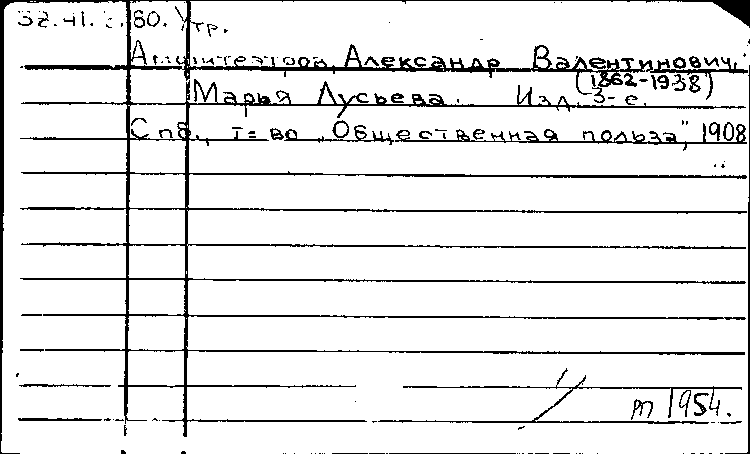 32.41.2.80. Утр.
Амфитеатров, Александр Валентинович.
(1862-1938)
Марья Лусьева. Изд. 3-е.
Спб., т=во „Общественная польза", 1908
m 1954.